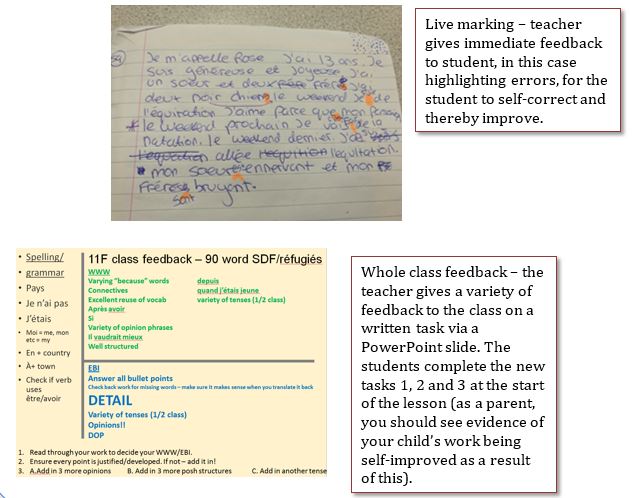 Live marking – teacher
gives immediate feedback
to student, in this case
highlighting errors, for the
student to self-correct and
thereby improve.
Je m'appelle Rose J'ai 13 ans. Je
suis généreuse et joyeuse J'ai
un soeur et deux frère
deux noir chien le weekend
l'équitation J'aime parce que mon
le weekend prochain Je vais
natation. le weekend dernier. J'ai
allée l'equitation.
mon soeur ennervant et mon
Frère bruyant.
Sont
11F class feedback – 90 word SDF/réfugiés
• Spelling/
• grammar
• Pays
• Je n'ai pas
• J'étais
• Moi = me, mon
etc = my
• En + country
• À+ town
• Check if verb
uses
être/avoir
WWW
Varying "because" words
Connectives
Excellent reuse of vocab
Après avoir
Si
Variety of opinion phrases
Il vaudrait mieux
Well structured
depuis
quand j'étais jeune
variety of tenses (1/2 class)
EBI
Answer all bullet points
Check back work for missing words – make sure it makes sense when you translate it back
DETAIL
Variety of tenses (1/2 class)
Opinions!!
DOP
1. Read through your work to decide your WWW/EBI.
2. Ensure every point is justified/developed. If not – add it in!
3. A.Add in 3 more opinions B. Add in 3 more posh structures C. Add in another tense
Whole class feedback – the
teacher gives a variety of
feedback to the class on a
written task via a
PowerPoint slide. The
students complete the new
tasks 1, 2 and 3 at the start
of the lesson (as a parent,
you should see evidence of
your child's work being
self-improved as a result
of this).